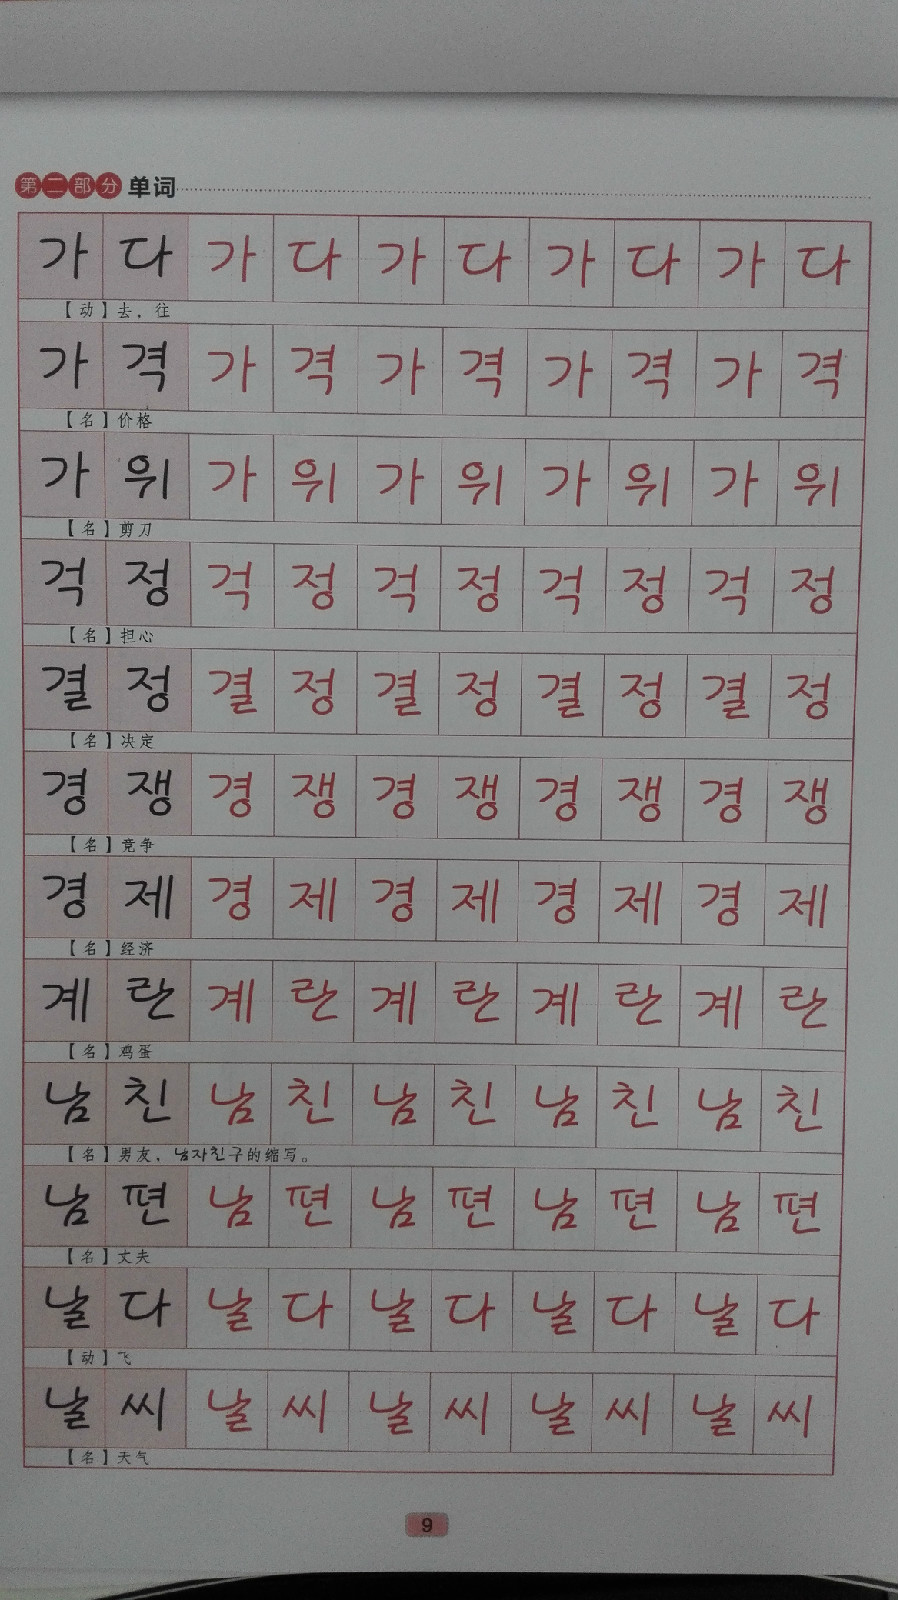 第二部分 单词
가 다 가 다 가 다 가 다 가 다
【动】去，往
가 격 가 격 가 격 가 격 가 격
【名】价格
가 위 가 위 가 위 가 위 가 위
【名】剪刀
걱 정 걱 정 걱 정 걱 정 걱 정
【名】担心
결 정 결 정 결 정 결 정 결 정
【名】决定
경 쟁 경 쟁 경 쟁 경 쟁 경 쟁
【名】竞争
경 제 경 제 경 제 경 제 경 제
【名】经济
계 란 계 란 계 란 계 란 계 란
【名】鸡蛋
남 친 남 친 남 친 남 친 남 친
【名】男友，남자친구的缩写。
남 편 남 편 남 편 남 편 남 편
【名】丈夫
날 다 날 다 날 다 날 다 날 다
【动】飞
날 씨 날 씨 날 씨 날 씨 날 씨
【名】天气
9